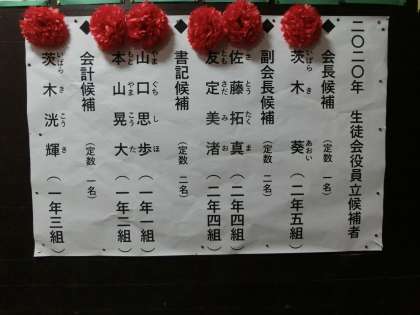 二〇二〇年 生徒会役員立候補者
◆会長候補 (定数 一名)
茨木 葵 (二年五組)
いばら き あおい
◆副会長候補 (定数 二名)
佐藤拓真 (二年四組)
さ とう たく ま
友定美渚 (二年四組)
とも さだ み お
◆書記候補 (定数 二名)
山口思歩 (一年一組)
やま ぐち し ほ
本山晃大 (一年二組)
もと やま こう た
◆会計候補 (定数 一名)
茨木洸輝 (一年三組)
いばら き こう き